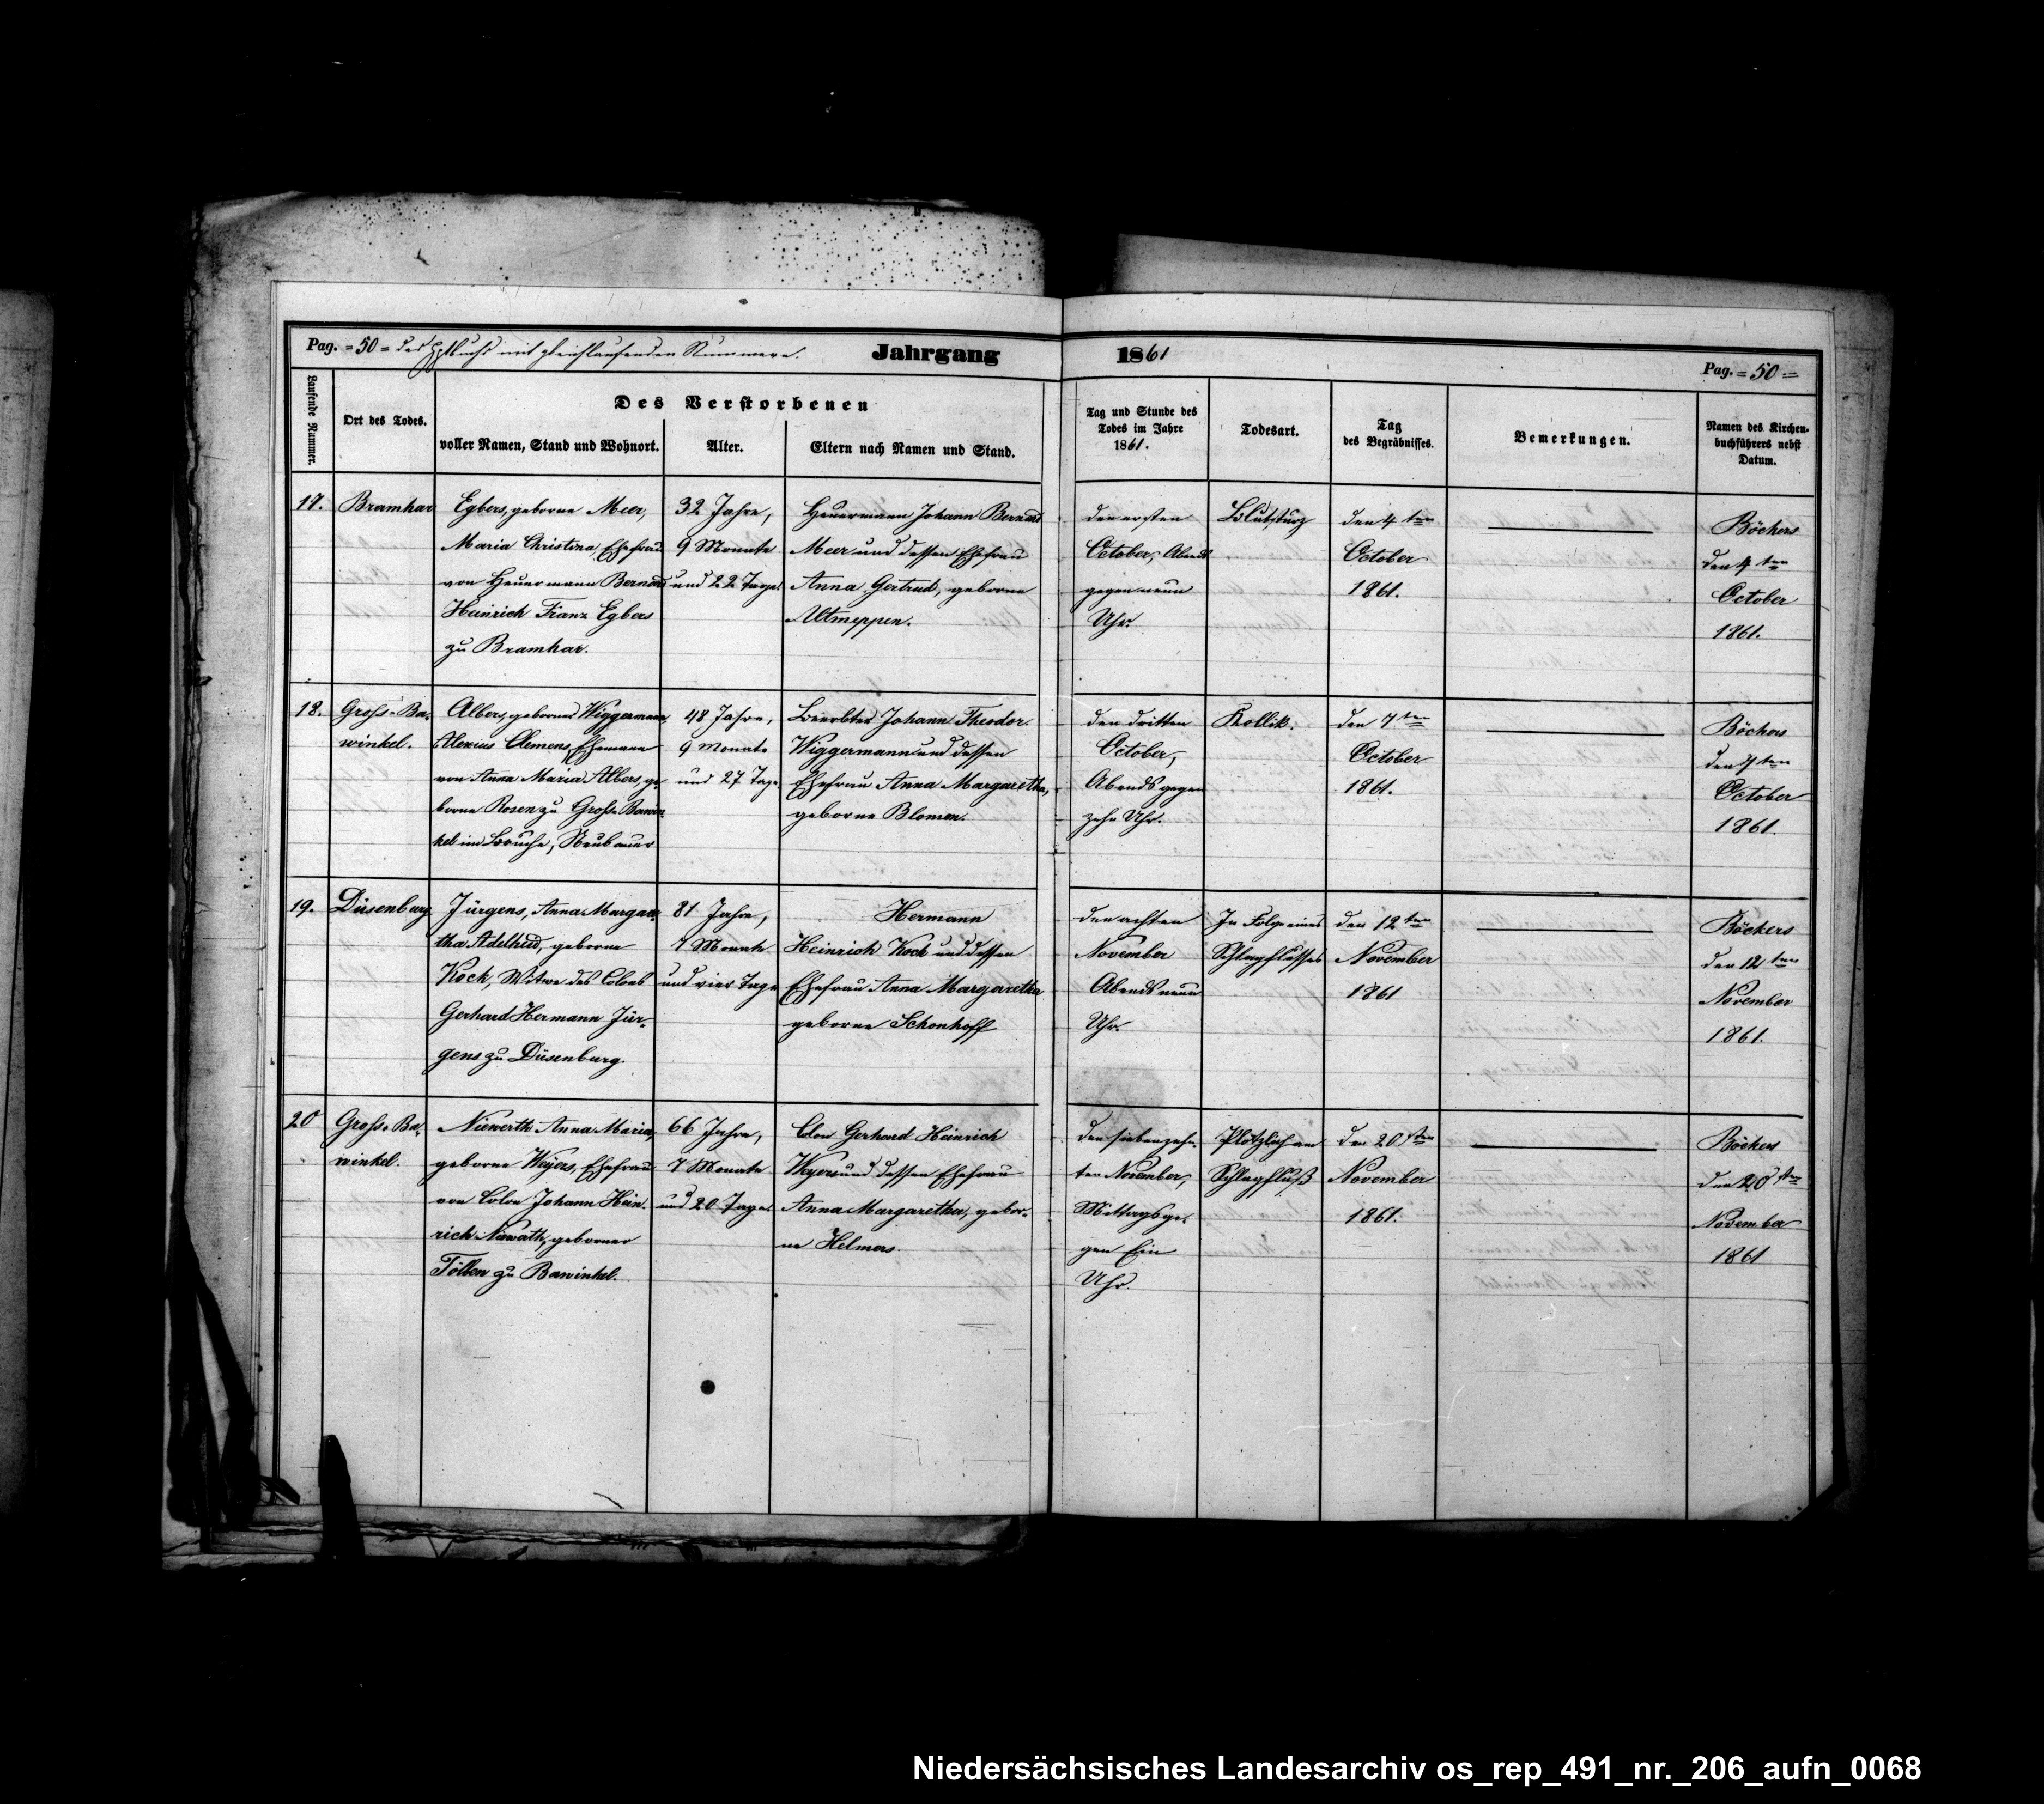 Pag. = 50 = des Hptbuchs mit gleichlaufenden Nummern. Jahrgang 1861 Pag. = 50 =
Laufende Nummer.
Ort des Todes.
Des Verstorbenen
voller Namen, Stand und Wohnort.
Alter.
Eltern nach Namen und Stand.
Tag und Stunde des
Todes im Jahre
1861.
Todesart.
Tag
des Begräbnisses.
Bemerkungen.
Namen des Kirchen-
buchführers nebst
Datum.
17.
Bramhar
Egbers, geborne Meer,
Maria Christina, Ehefrau
von Heuermann Bernard
Heinrich Franz Egbers
zu Bramhar.
32 Jahre,
9 Monate
und 22 Tage.
Heuermann Johann Bernard
Meer und dessen Ehefrau
Anna Gertrud, geborne
Altmeppen.
den ersten
October, Abends
gegen neun
Uhr.
Blutsturz
den 4ten
October
1861.
Böckers
den 4ten
October
1861.
18.
Gross-Ba-
winkel.
Albers, geborner Wiggermann,
Alexius Clemens, Ehemann
von Anna Maria Albers, ge-
borne Rosen zu Gross-Bawin-
kel im Bruche, Neubauer
48 Jahre,
9 Monate
und 27 Tage.
Beerbter Johann Theodor
Wiggermann und dessen
Ehefrau Anna Margaretha,
geborne Blomen.
den dritten
October,
Abends gegen
zehn Uhr.
Kollik.
den 7ten
October
1861.
Böckers
den 7ten
October
1861.
19.
Düsenburg
Jürgens, Anna Margare-
tha Adelheid, geborne
Kock, Witwe des Colons
Gerhard Hermann Jür-
gens zu Düsenburg.
81 Jahre,
7 Monate
und vier Tage
Hermann
Heinrich Kock und dessen
Ehefrau Anna Margaretha
geborne Schonhoff
den achten
November
Abends neun
Uhr.
In Folge eines
Schlagflusses
den 12ten
November
1861
Böckers
den 12ten
November
1861.
20
Gross-Ba-
winkel.
Niewerth Anna Maria,
geborne Weyers, Ehefrau
von Colon Johann Hein-
rich Niewerth, geborner
Tölken zu Bawinkel.
66 Jahre,
7 Monate
und 20 Tage.
Colon Gerhard Heinrich
Weyers und dessen Ehefrau
Anna Margaretha, gebor-
ne Helmers.
den siebenzehn-
ten November,
Mittags ge-
gen Ein
Uhr.
Plötzlich am
Schlagfluß
den 20sten
November
1861.
Böckers
den 20sten
November
1861
Niedersächsisches Landesarchiv os_rep_491_nr._206_aufn_0068